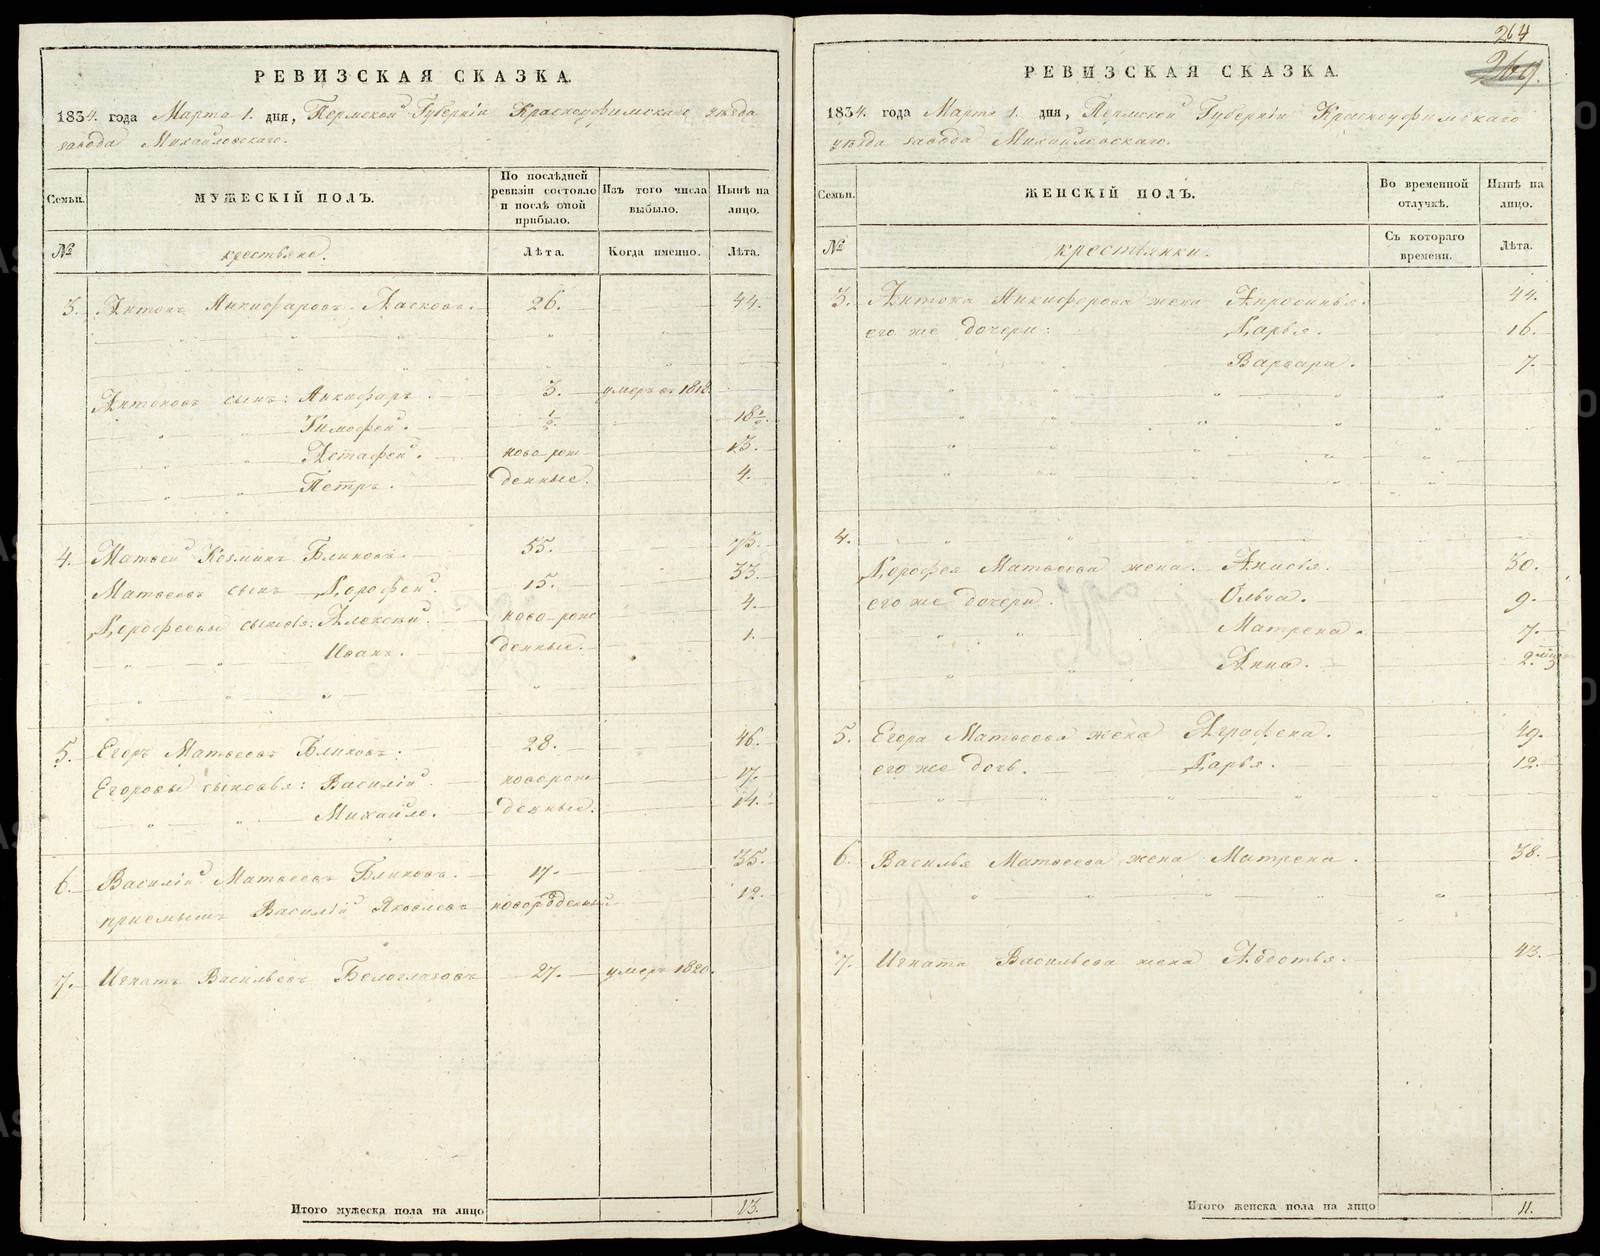 РЕВИЗСКАЯ СКАЗКА.
1834. года Марта 1. дня, Пермской Губернiи Красноуфимскаго уѣзда
завода Михайловскаго.
Семьи.
МУЖЕСКІЙ ПОЛЪ.
По послѣдней ревизіи состояло и послѣ оной прибыло.
Изъ того числа выбыло.
Нынѣ на лицо.
№
крестьяне.
Лѣта.
Когда именно.
Лѣта.
3. Антонъ Никифаровъ 26. 44.
Антоновъ сынъ: Никифаръ. 3. умеръ въ 1818.
Тимофей. ½. 18½.
Астафей.ново рож 13.
Петръ. денные. 4.
4. Матвей Козминъ Блиновъ. 55. 73.
Матвеевъ сынъ Дорофей. 15. 33.
Дорофеевы сыновья: Алексей. ново рож 4.
Иванъ. денные. 1.
5. Егоръ Матвеевъ Блиновъ. 28. 46.
Егоровы сыновья: Василiй новорож 17.
Михайло. денные. 14.
6. Василiй Матвеевъ Блиновъ. 17. 35.
приемышъ Василiй Яковлевъ новорожденный 12.
7. Игнатъ Васильевъ Белоглазовъ 27. умеръ 1820.
Итого мужеска пола на лицо 13.
264
269.
РЕВИЗСКАЯ СКАЗКА.
1834. года Марта 1. дня, Пермской Губернiи Красноуфимскаго
уѣзда завода Михайловскаго.
Семьи.
ЖЕНСКІЙ ПОЛЪ.
Во временной отлучкѣ.
Нынѣ на лицо.
№
крестьянки.
Съ котораго времени.
Лѣта.
3. Антона Никифорова жена Апросинья. 44.
его же дочери: Дарья. 16.
Варвара. 7.
4.
Дорофея Матвеева жена. Анисья. 30.
его же дочери. Ольга. 9.
Матрена. 7.
Анна. 2.
5. Егора Матвеева жена Аграфена. 49.
его же дочь. Дарья. 12.
6. Василья Матвеева жена Матрена. 38.
7. Игната Васильева жена Авдотья. 43.
Итого женска пола на лицо 11.
METRIKI.GASO-URAL.RU